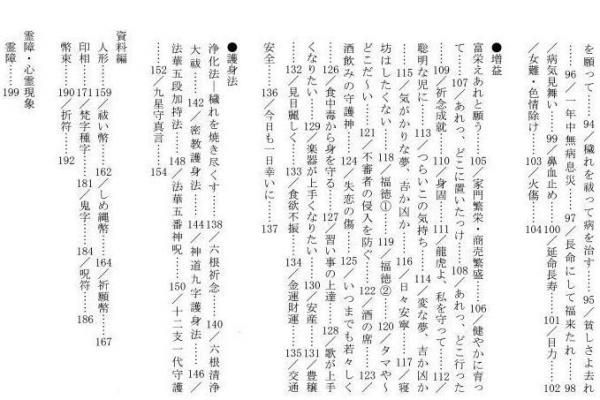 を願って……94／穢れを祓って病を治す……95／貧しさよ去れ
……96／一年中無病息災……97／長命にして福来たれ……98
／病気見舞い……99／鼻血止め……100／延命長寿……101／目力……102
／女難・色情除け……103／火傷……104
●増益
富栄えあれと願う……105／家門繁栄・商売繁盛……106／健やかに育っ
て……107／あれっ、どこに置いたっけ……108／あれっ、どこ行った
……109／祈念成就……110／身固……111／龍虎よ、私を守って……112／
聡明な児に……113／つらいこの気持ち……114／変な夢、吉か凶か
……115／気がかりな夢、吉か凶か……116／日々安寧……117／寝
坊はしたくない……118／福徳①……119／福徳②……120／タマや〜
どこだ〜い……121／不審者の侵入を防ぐ……122／酒の席……123／
酒飲みの守護神……124／失恋の傷……125／いつまでも若々しく
……126／食中毒から身を守る……127／習い事の上達……128／歌が上手
くなりたい……129／楽器が上手くなりたい……130／安産……131／豊穣
……132／見目麗しく……133／食欲不振……134／金運財運……135／交通
安全……136／今日も一日幸いに……137
●護身法
浄化法―穢れを焼き尽くす……138／六根祈念……140／六根清浄
大祓……142／密教護身法……144／神道九字護身法……146／
法華五段加持法……148／法華五番神呪……150／十二支一代守護
……152／九星守真言……154
資料編
人形……159／祓い幣……162／しめ縄幣……164／祈願幣……167
印相……171／梵字種字……181／鬼字……184／呪符……186
幣束……190／折符……192
霊障・心霊現象
霊障……199